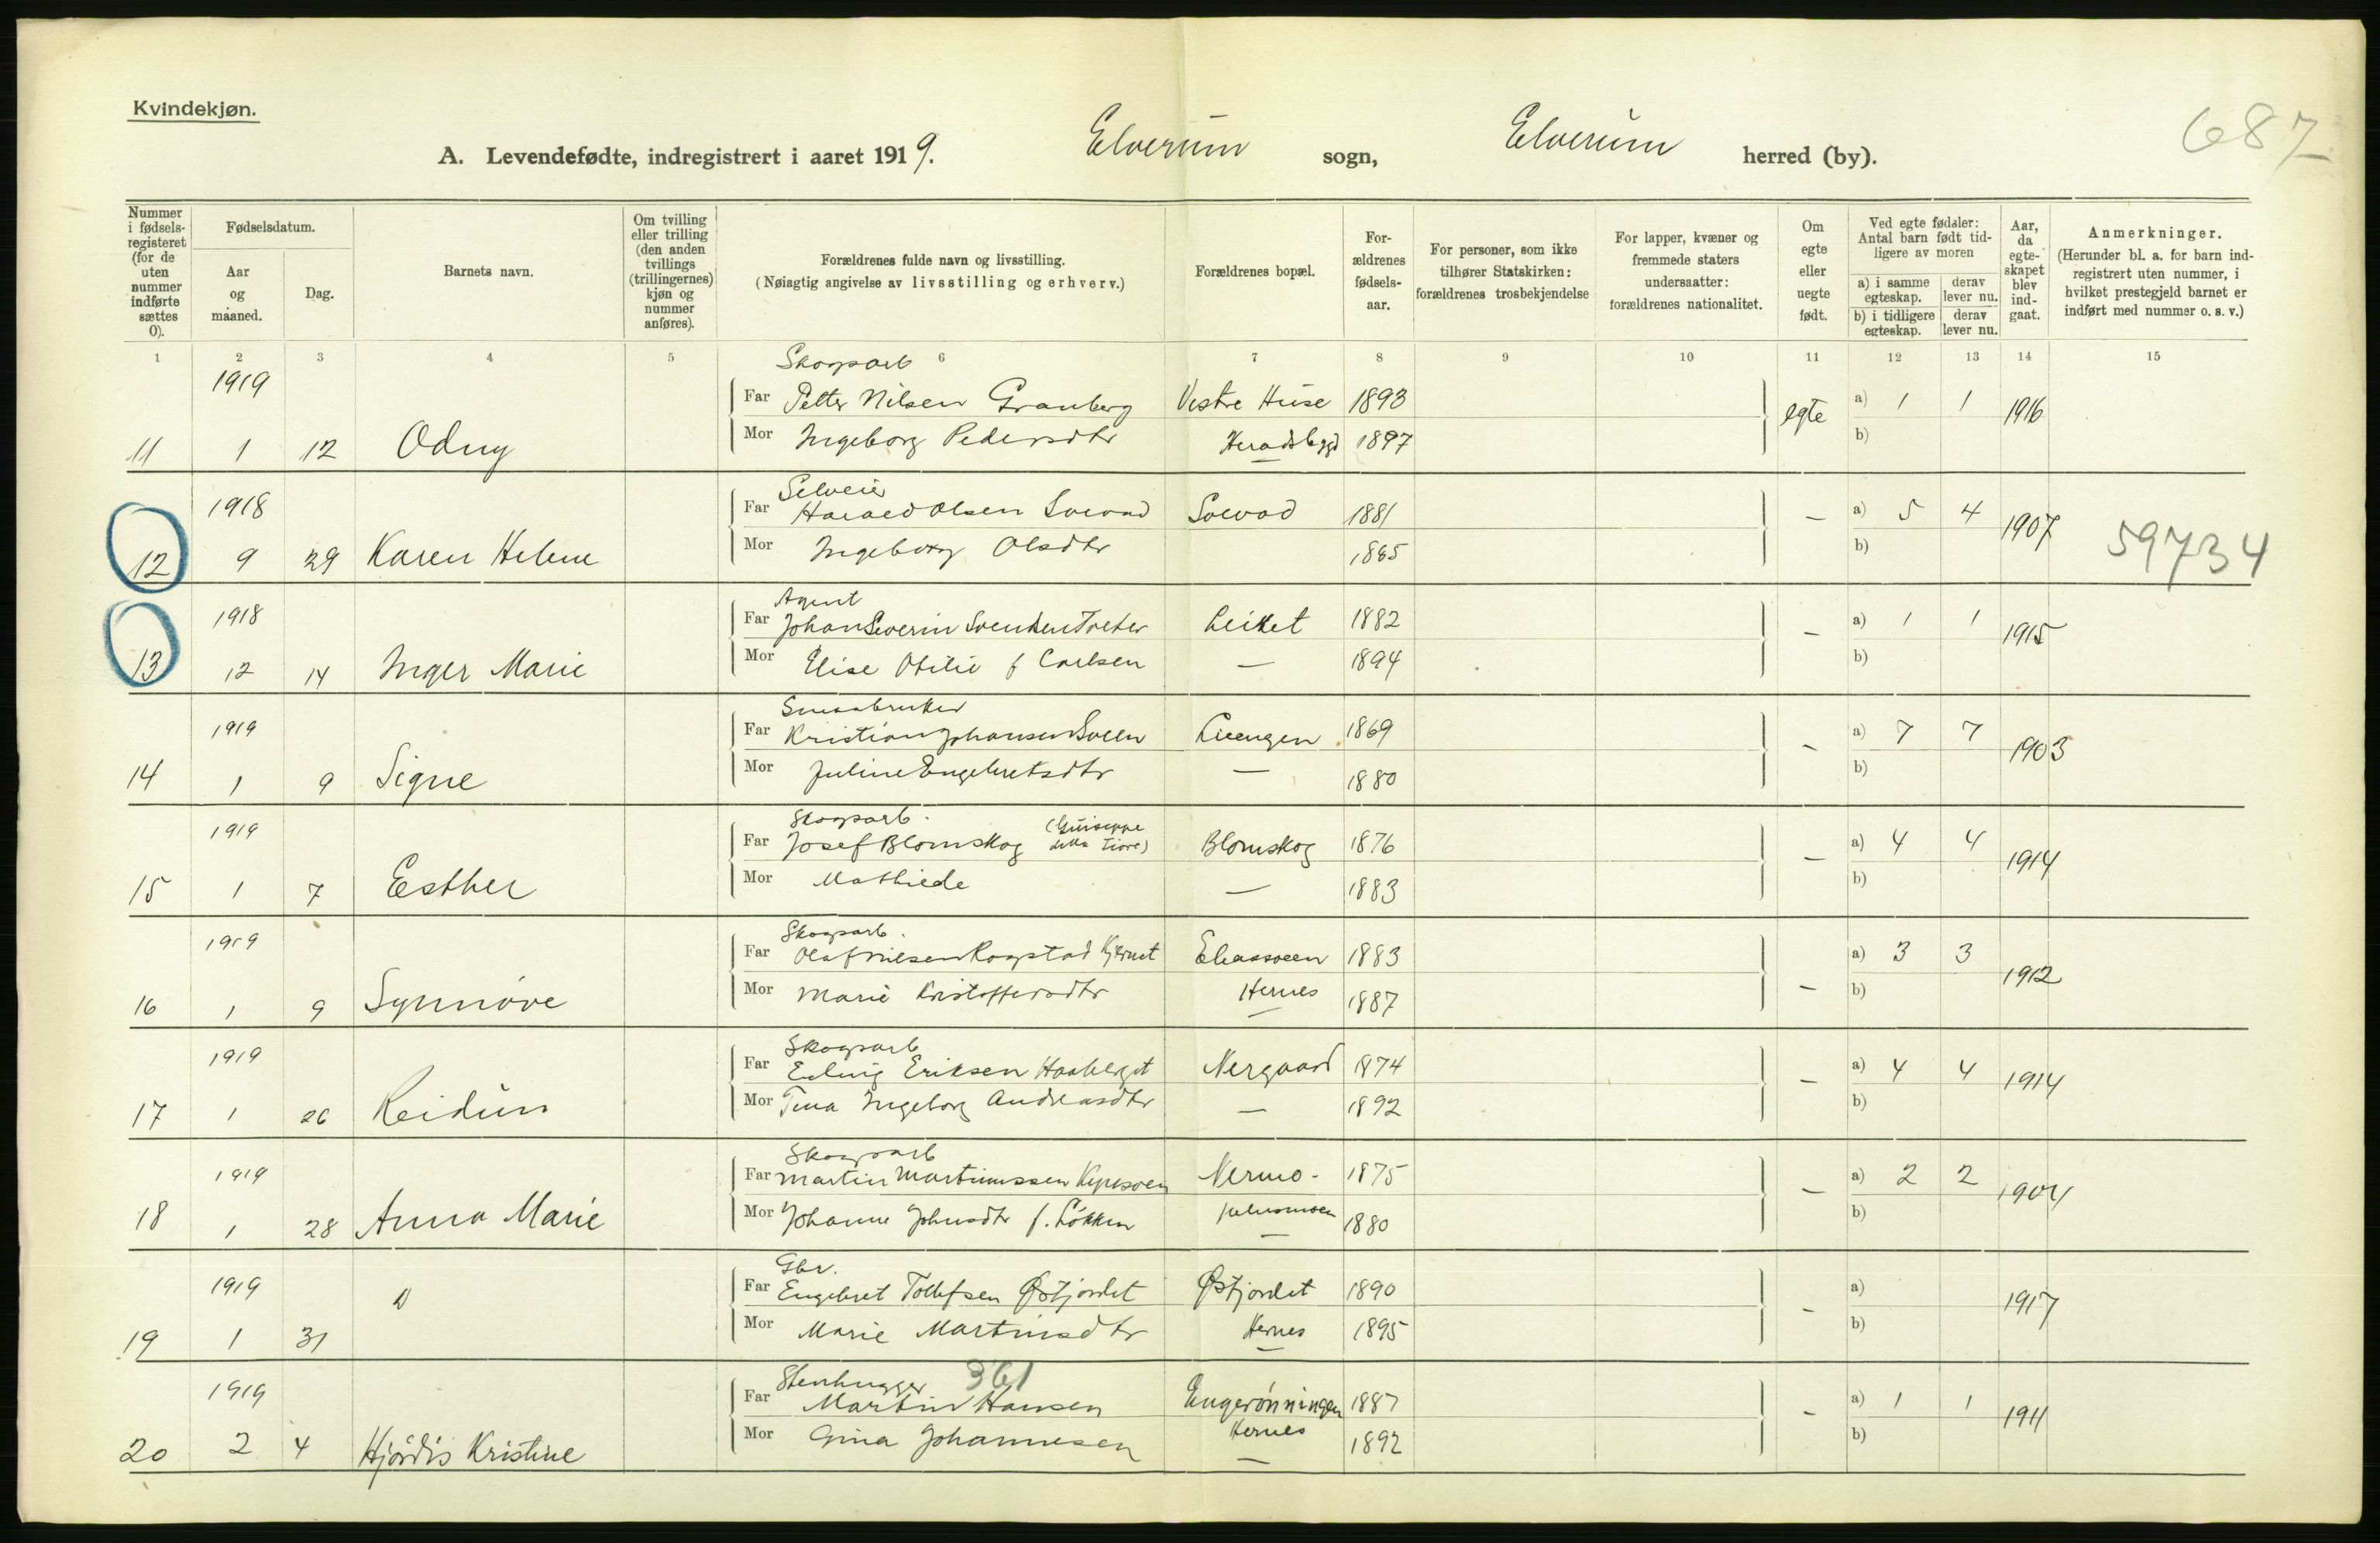 Kvindekjøn.
687
A. Levendefødte, indregistrert i aaret 1919. Elverum sogn, Elverum herred (by).
Nummer i fødselsregisteret (for de uten nummer indførte sættes 0).
Fødselsdatum.
Aar og maaned.
Dag.
Barnets navn.
Om tvilling eller trilling (den anden tvillings (trillingernes) kjøn og nummer anføres).
Forældrenes fulde navn og livsstilling.
(Nøiagtig angivelse av livsstilling og erhverv.)
Forældrenes bopæl.
For-ældrenes fødsels-aar.
For personer, som ikke tilhører Statskirken: forældrenes trosbekjendelse
For lapper, kvæner og fremmede staters undersaatter: forældrenes nationalitet.
Om egte eller uegte født.
Ved egte fødsler: Antal barn født tidligere av moren
a) i samme egteskap. derav lever nu.
b) i tidligere egteskap. derav lever nu.
Aar, da egteskapet blev indgaat.
Anmerkninger.
(Herunder bl. a. for barn indregistrert uten nummer, i hvilket prestegjeld barnet er indført med nummer o. s. v.)
1 2 3 4 5 6 7 8 9 10 11 12 13 14 15
Skogsarb
1919 Far Petter Nilsen Granberg Vestre Huse 1893 egte a) 1 1 1916
11 1 12 Odny Mor Ingeborg Pedersdtr Heradsbygd 1897 b)
Selveier
1918 Far Harald Olsen Sorvad 1881 — a) 5 4 1907
12 9 29 Karen Helene Mor Ingeborg Olsdtr 1885 b) 59734
Agent
1918 Far Johan Severin Svendsen Tveter Leiret 1882 — a) 1 1 1915
13 12 14 Inger Marie Mor Elise Otilie f Carlsen — 1894 b)
Smaabruker
1919 Far Kristian Johansen 1869 — a) 7 7 1903
14 1 9 Signe Mor Juline Engebretsdtr — 1880 b)
Skogsarb.
1919 Far Josef Blomskog (Guiseppe della Fiore) Blomskog 1876 — a) 4 4 1914
15 1 7 Esther Mor Mathilde — 1883 b)
Skogsarb.
1919 Far Olaf Nilsen Rogstad Kjernet 1883 — a) 3 3 1912
16 1 9 Synnöve Mor Marie Kristoffersdtr Hernes 1887 b)
Skogsarb
1919 Far Eriksen Haaberget Nergaard 1874 — a) 4 4 1914
17 1 26 Reidun Mor Tina Ingeborg Andreasdtr — 1892 b)
Skogsarb
1919 Far Martin Martinussen Nermo- 1875 — a) 2 2 1904
18 1 28 Anna Marie Mor Johanne Johnsdtr f. Lökken 1880 b)
Gbr.
1919 Far Engebret Tollefsen Østjordet Østjordet 1890 — a) 1917
19 1 31 Mor Marie Martinsdtr Hernes 1895 b)
Stenhugger 361
1919 Far Martin Hansen Engerönningen 1887 — a) 1 1 1911
20 2 4 Hjördis Kristine Mor Gina Johannesen Hernes 1892 b)